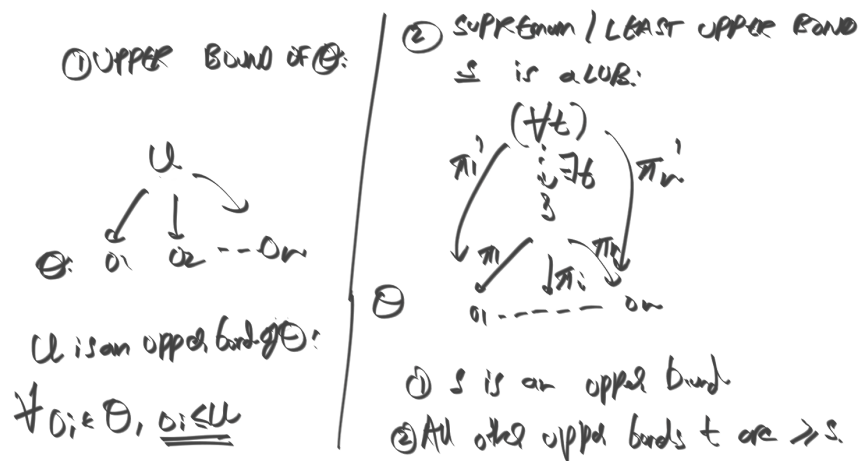 ① UPPER BOUND OF Θ:
U
Θ: O1 O2 --- On
U is an upper bond of Θ:
∀ Oi ∈ Θ, Oi ≤ U
② SUPREMUM / LEAST UPPER BOND
S is a LUB:
(∀t)
π1' ∃f πn'
S
π1 πi πn
Θ O1 ------ On
① S is an upper bound.
② All other upper bonds t are ≥ S.